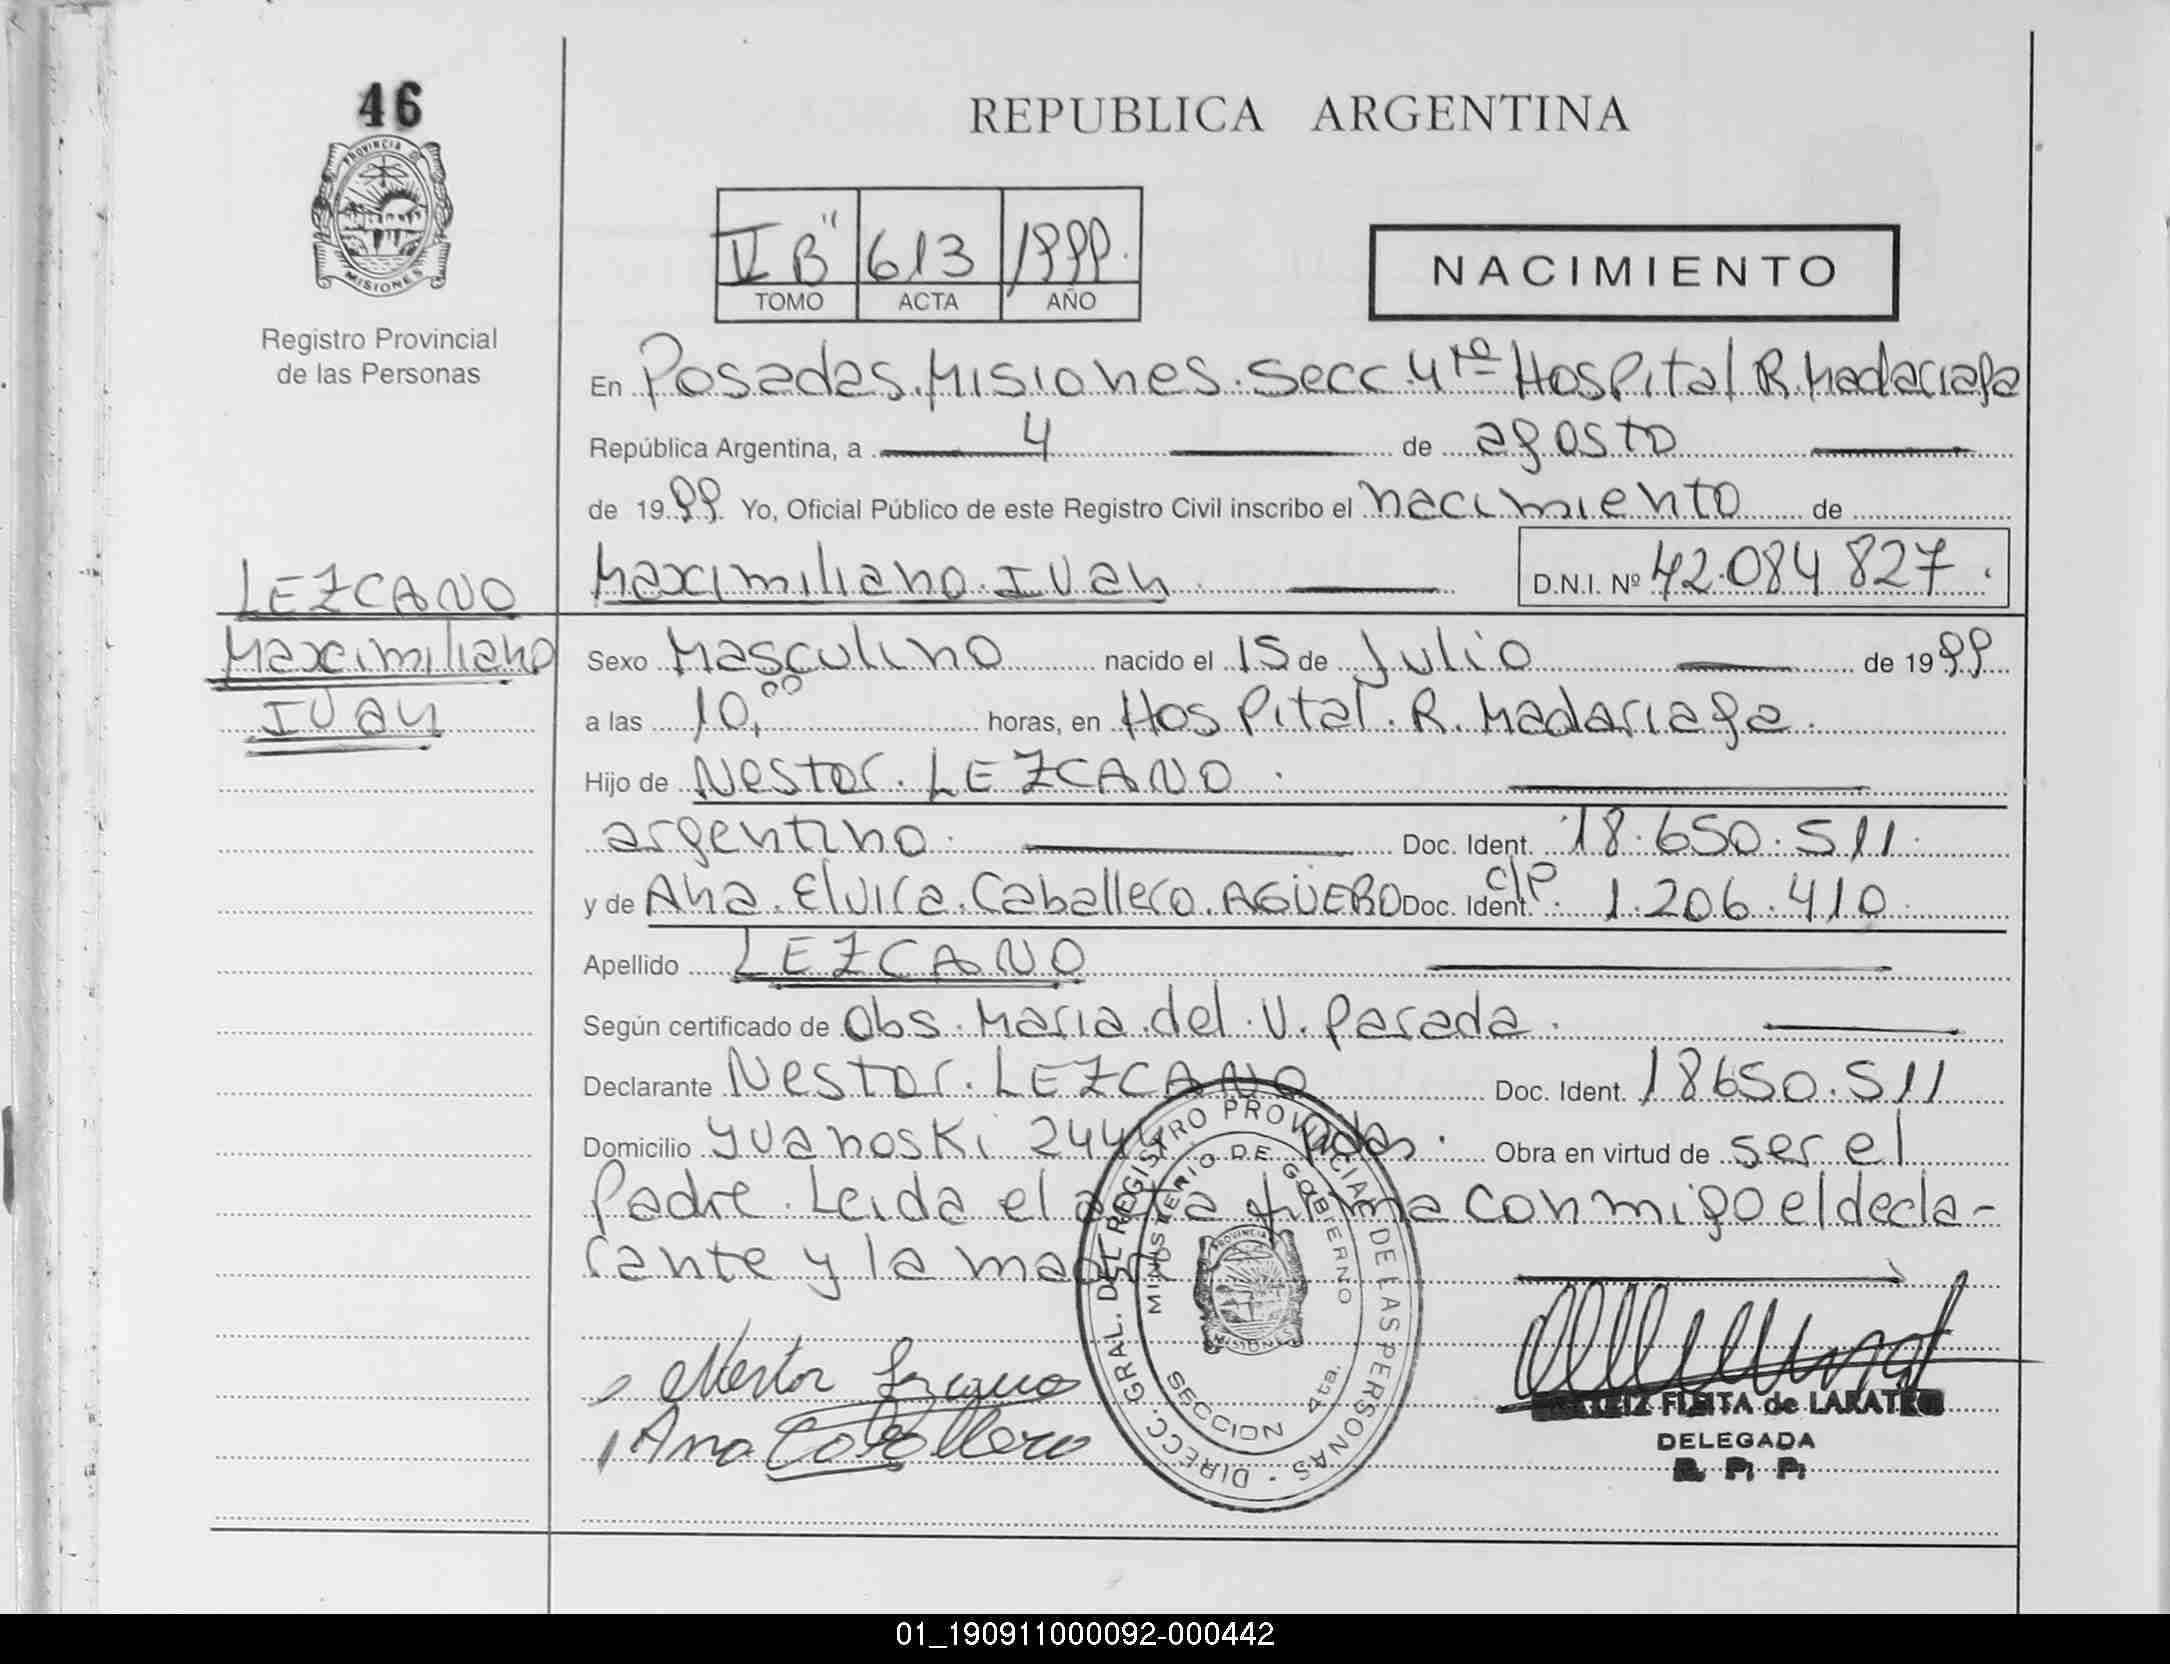 46
PROVINCIA DE
MISIONES
Registro Provincial
de las Personas
REPUBLICA ARGENTINA
V B" 613 1999.
TOMO ACTA AÑO
NACIMIENTO
En Posadas. Misiones. Secc. 4ta Hospital R. Madariaga
República Argentina, a 4 de agosto
de 1999 Yo, Oficial Público de este Registro Civil inscribo el nacimiento de
Maximiliano Ivan D.N.I. Nº 42.084 827.
LEZCANO
Maximiliano
Ivan
Sexo Masculino nacido el 15 de Julio de 1999
a las 10,00 horas, en Hospital. R. Madariaga.
Hijo de Nestor. LEZCANO.
argentino. Doc. Ident. 18.650.511.
y de Ana. Elvira. Caballero. AGÜERO Doc. Ident. C/P. 1.206.410.
Apellido LEZCANO
Según certificado de Obs. Maria del V. Parada.
Declarante Nestor. LEZCANO Doc. Ident. 18650.511
Domicilio Yvanoski 2444 Pdas. Obra en virtud de ser el
Padre. Leida el acta firma conmigo el decla-
rante y la madre
Nestor Lezcano
Ana Caballero
DIRECC. GRAL. DEL REGISTRO PROVINCIAL DE LAS PERSONAS
MINISTERIO DE GOBIERNO
PROVINCIA
MISIONES
SECCION 4ta.
de LARATRO
DELEGADA
R. P. P.
01_190911000092-000442